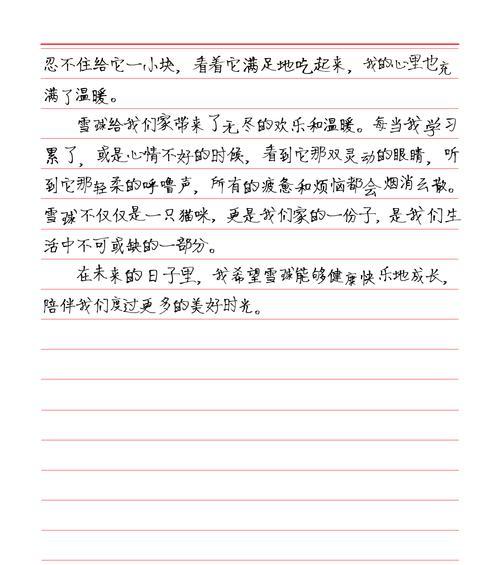 忍不住给它一小块，看着它满足地吃起来，我的心里也充
满了温暖。
雪球给我们家带来了无尽的欢乐和温暖。每当我学习
累了，或是心情不好的时候，看到它那双灵动的眼睛，听
到它那轻柔的呼噜声，所有的疲惫和烦恼都会烟消云散。
雪球不仅仅是一只猫咪，更是我们家的一份子，是我们生
活中不可或缺的一部分。
在未来的日子里，我希望雪球能够健康快乐地成长，
陪伴我们度过更多的美好时光。